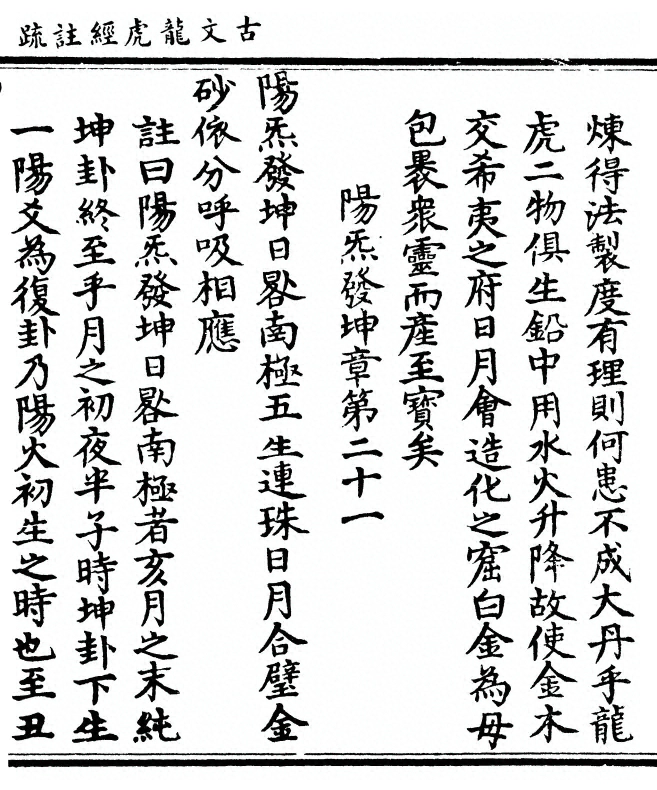 古文龍虎經註疏
煉得法製度有理則何患不成大丹乎龍
虎二物俱生鉛中用水火升降故使金木
交希夷之府日月會造化之窟白金為母
包褁衆靈而產至寶矣
陽炁發坤章第二十一
陽炁發坤日晷南極五生連珠日月合璧金
砂依分呼吸相應
註曰陽炁發坤日晷南極者亥月之末純
坤卦終至乎月之初夜半子時坤卦下生
一陽爻為復卦乃陽火初生之時也至丑